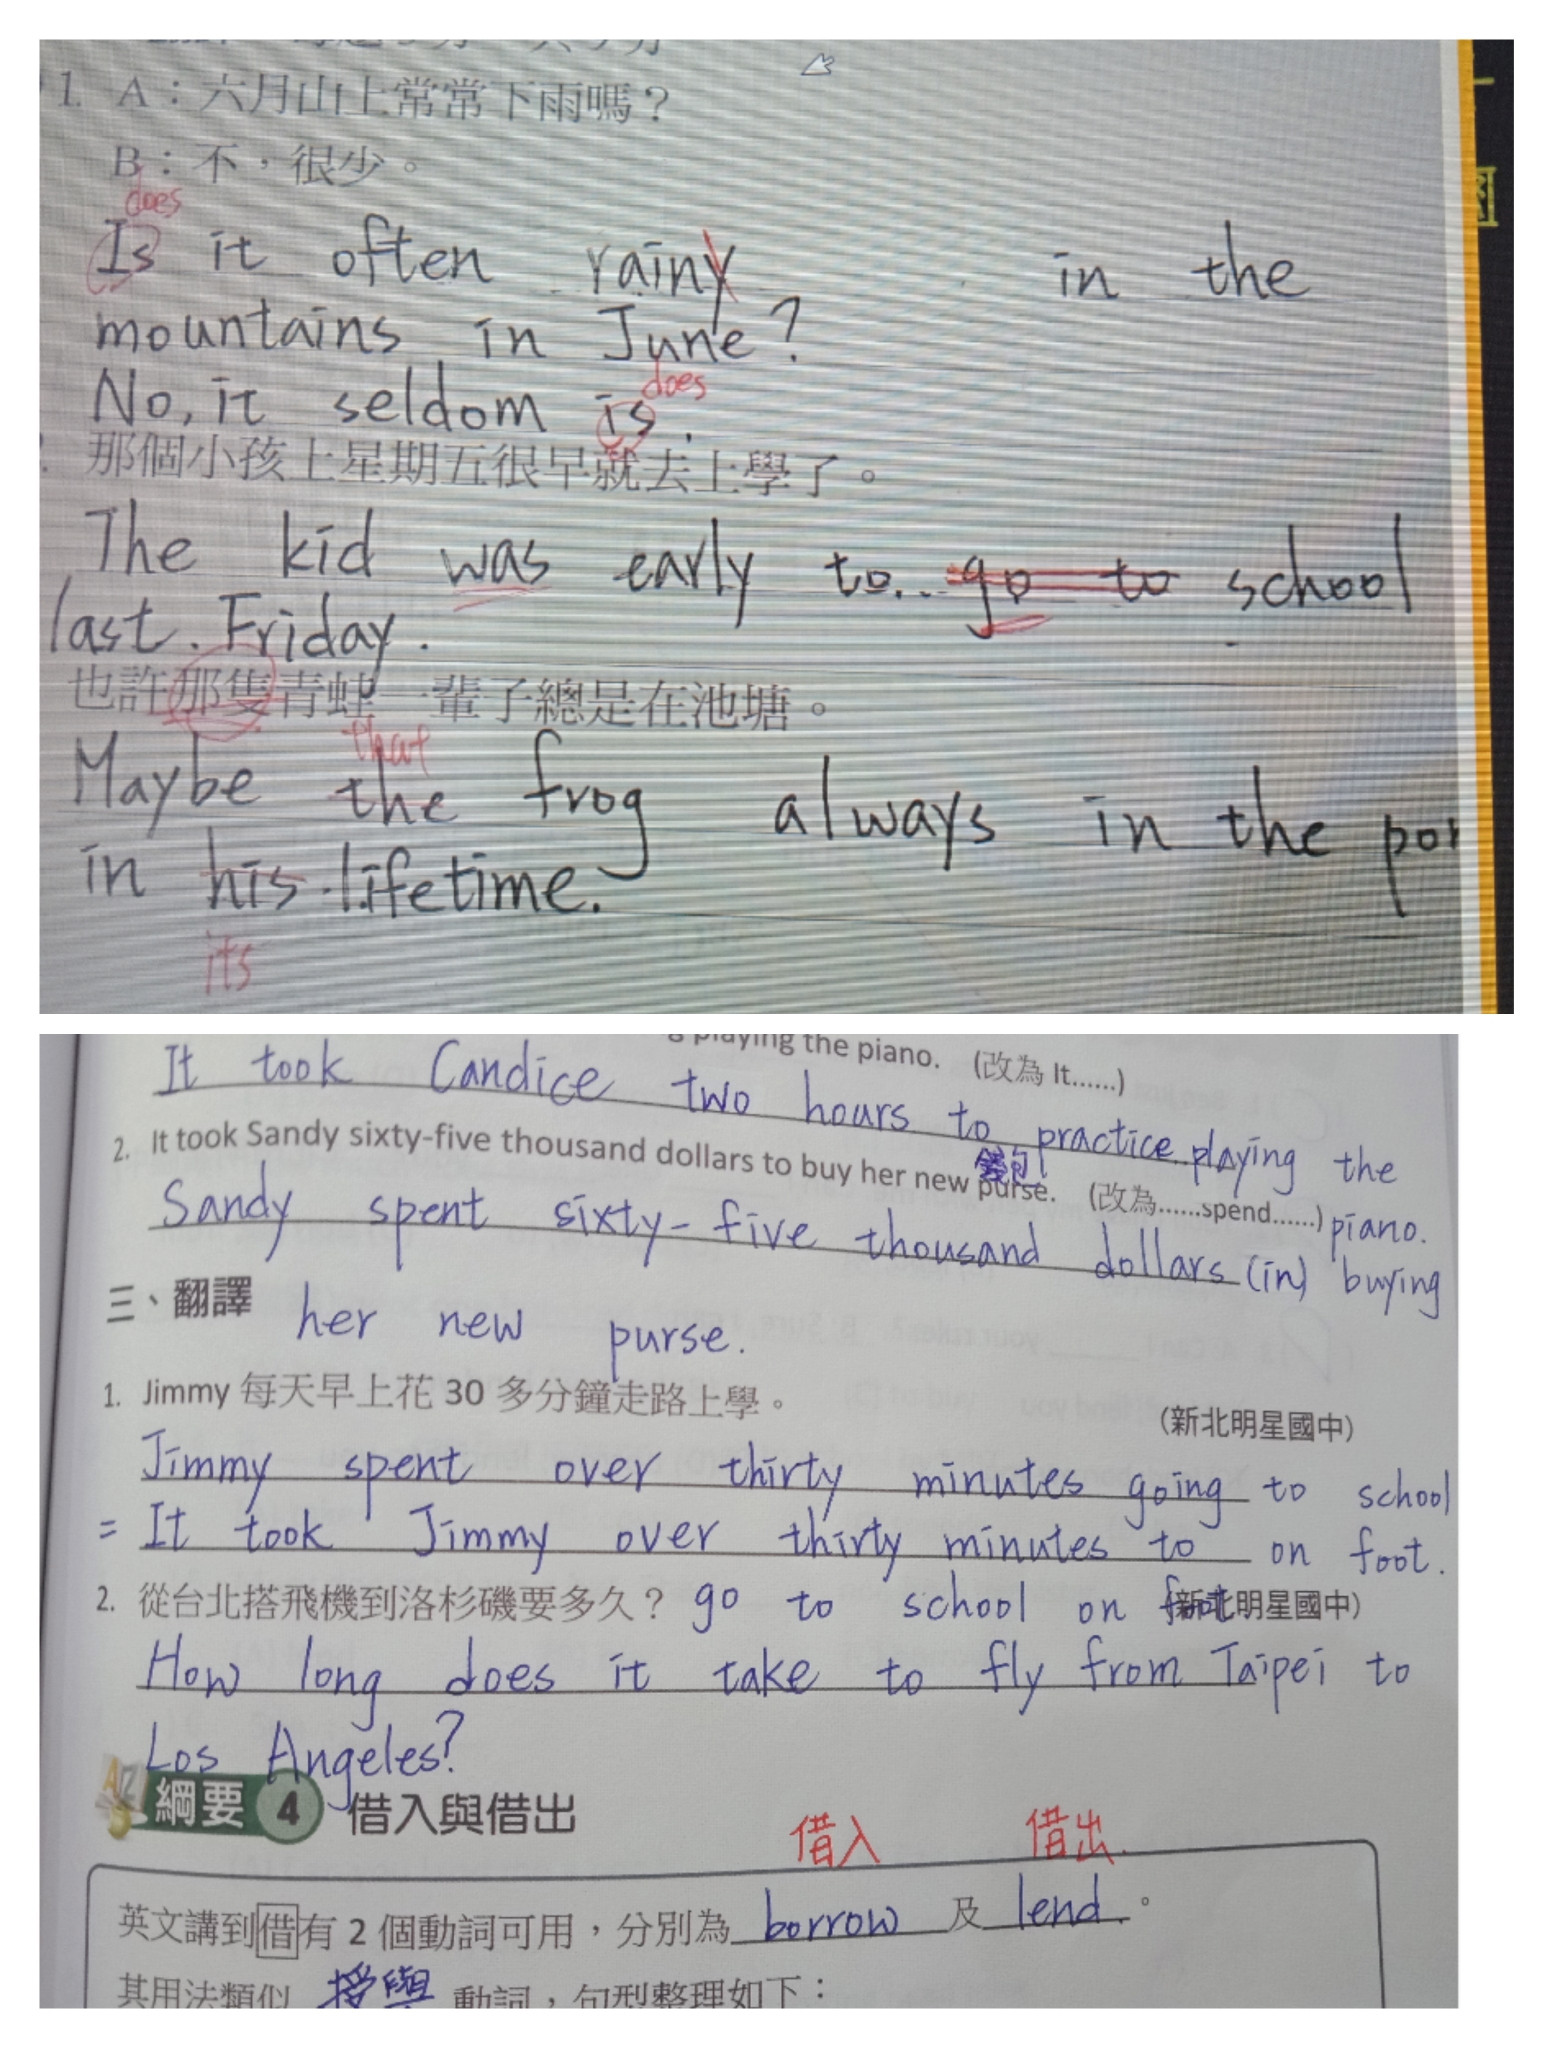 1. A：六月山上常常下雨嗎？
B：不，很少。
does
Is it often rainy in the
mountains in June?
does
No, it seldom is.
那個小孩上星期五很早就去上學了。
The kid was early to go to school
last Friday.
也許那隻青蛙一輩子總是在池塘。
that
Maybe the frog always in the
in his lifetime.
its
playing the piano. (改為 It......)
It took Candice two hours to practice playing the
piano.
2. It took Sandy sixty-five thousand dollars to buy her new purse. (改為......spend......)
錢包
Sandy spent sixty-five thousand dollars (in) buying
her new purse.
三、翻譯
1. Jimmy 每天早上花 30 多分鐘走路上學。
(新北明星國中)
Jimmy spent over thirty minutes going to school
on foot.
= It took Jimmy over thirty minutes to
go to school on foot
2. 從台北搭飛機到洛杉磯要多久？
(新北明星國中)
How long does it take to fly from Taipei to
Los Angeles?
綱要 4 借入與借出
借入 借出
英文講到借有 2 個動詞可用，分別為 borrow 及 lend。
其用法類似 授與 動詞，句型整理如下：